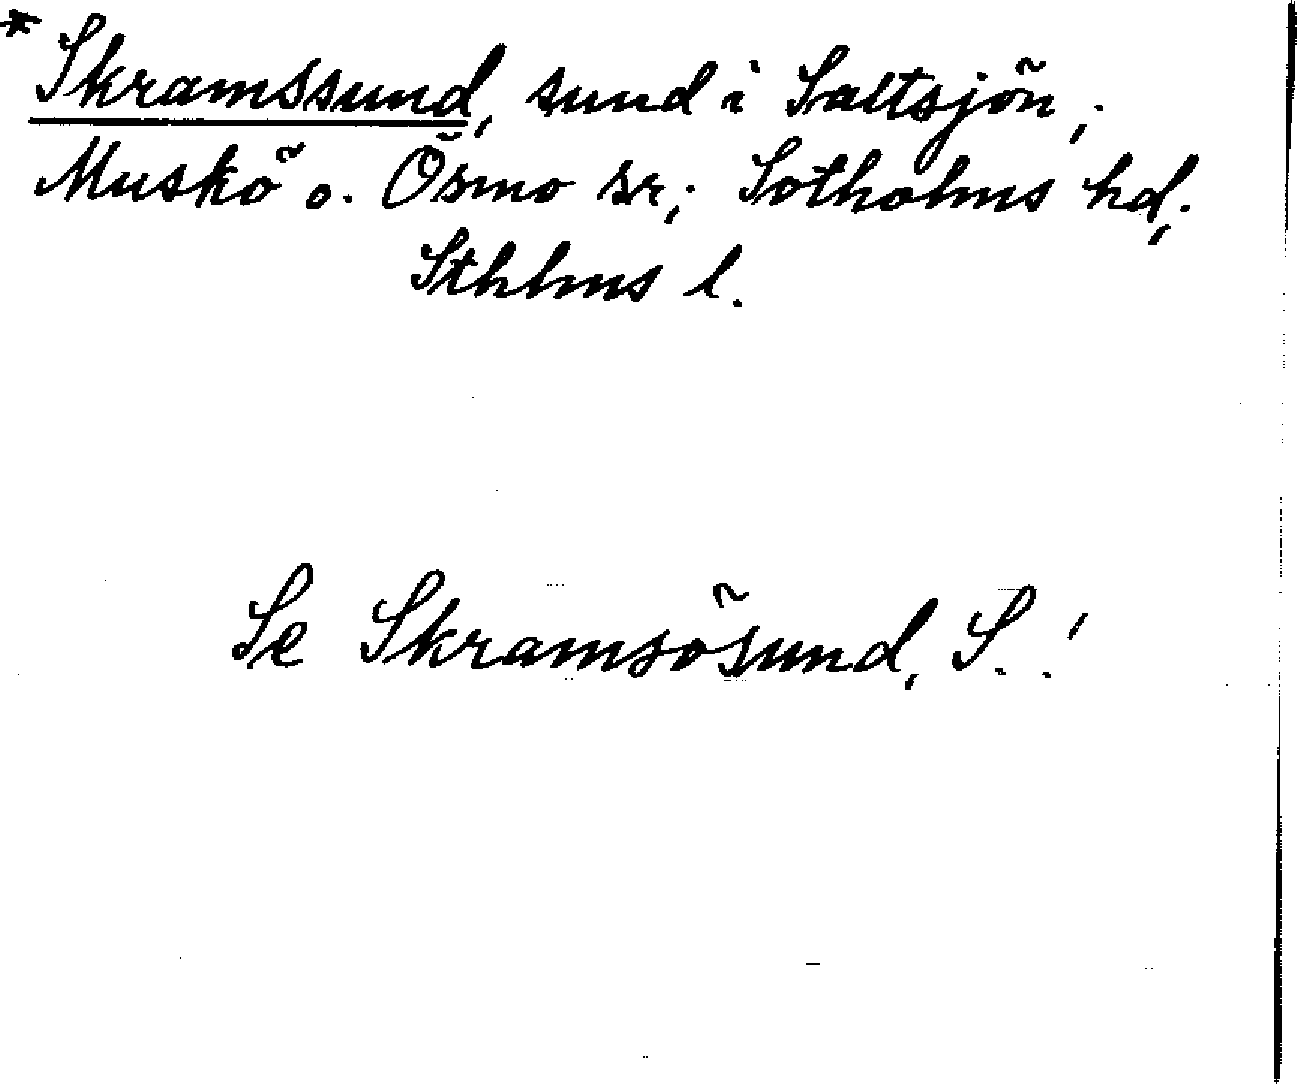 * Skramssund, sund i Saltsjön,;
Muskö o. Ösmo sr; Sotholms hd,.
Sthlms l.
Se Skramsösund, S..!